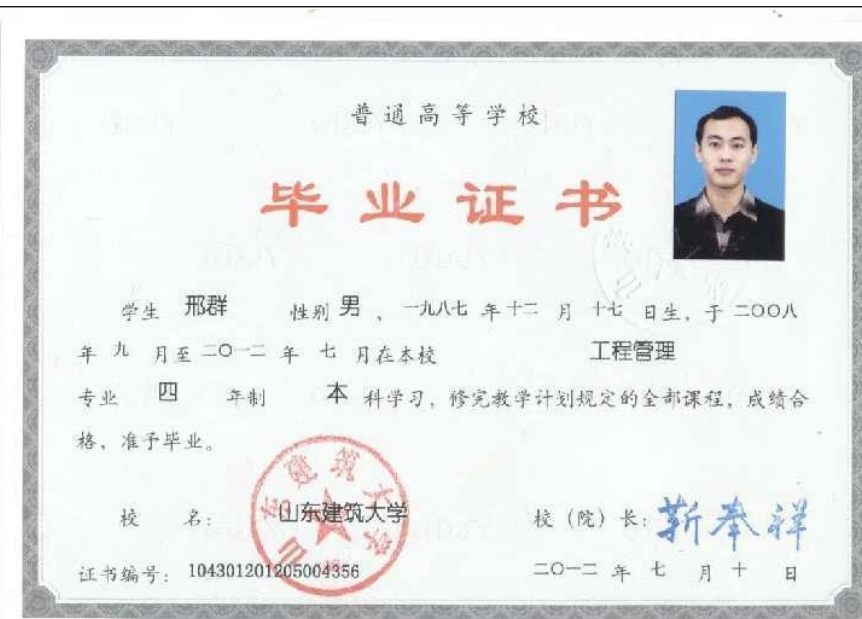 普通高等学校
毕业证书
学生 邢群 性别 男 ，一九八七 年 十二 月 十七 日生，于 二〇〇八
年 九 月至 二〇一二 年 七 月在本校 工程管理
专业 四 年制 本 科学习，修完教学计划规定的全部课程，成绩合
格，准予毕业。
山东建筑大学
校 名： 山东建筑大学 校（院）长：靳奉祥
证书编号：104301201205004356 二〇一二 年 七 月 十 日